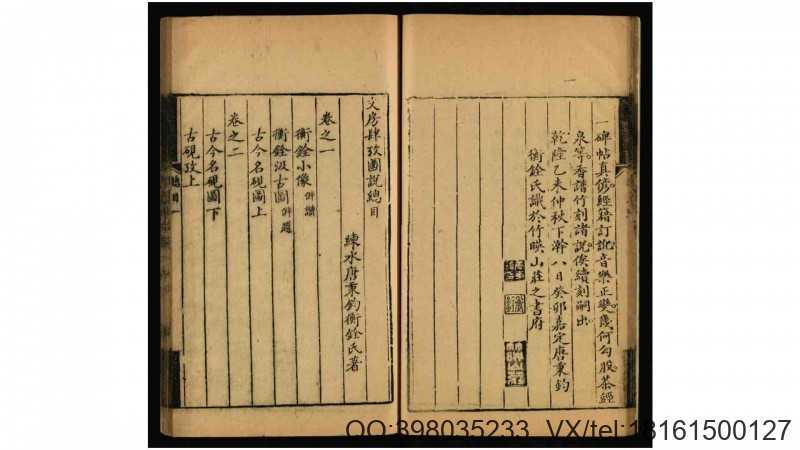 一碑帖真僞經籍訂訛音樂正變幾何勾股茶經
泉笒香譜竹刻諸說俟續刻嗣出
乾隆乙未仲秋下澣八日癸卯嘉定唐秉鈞
衡銓氏識於竹暎山莊之書府
文房肆攷圖說總目
練水唐秉鈞衡銓氏著
卷之一
衡銓小像 併讚
衡銓汲古圖 併題
古今名硯圖上
卷之二
古今名硯圖下
古硯攷上
總目一
QQ:398035233 VX/tel:13161500127